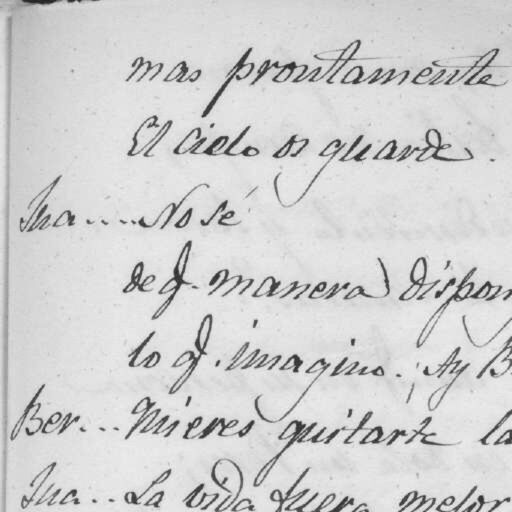 mas prontamente
El Cielo os guarde.
Jua....No sé
de q. manera dispon
lo q. imagino. ¡Ay B
Ber... Quieres quitarte la
Jua.. La vida fuera mejor